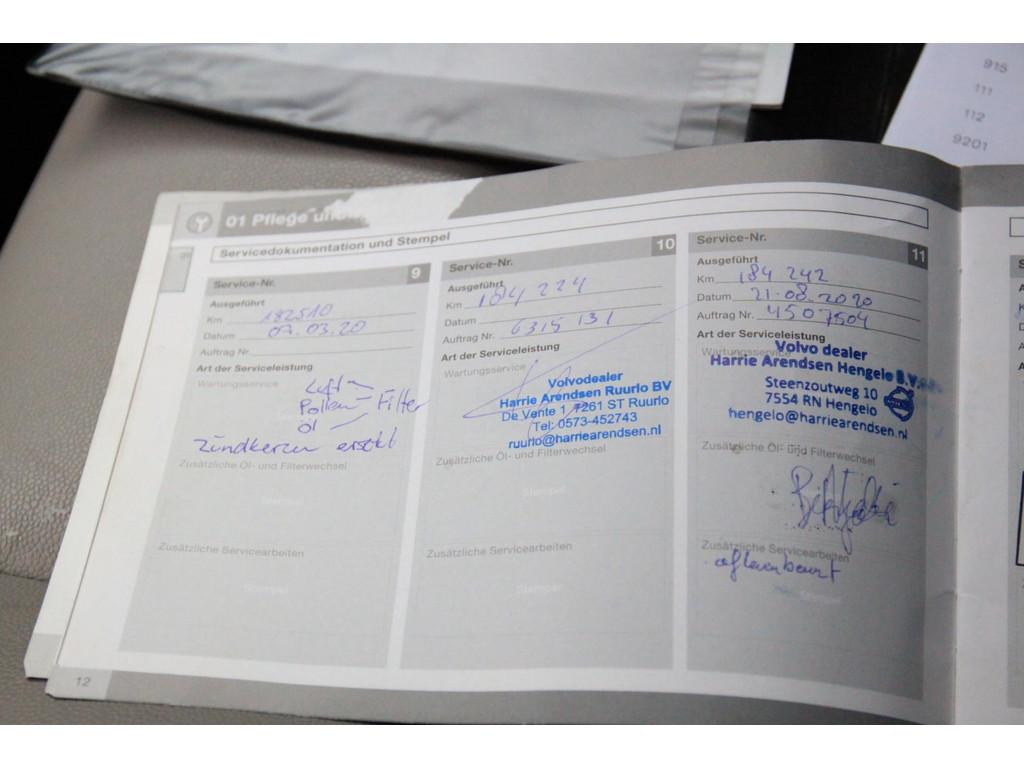 915
111
112
9201
01 Pflege
Servicedokumentation und Stempel
Service-Nr. 9
Ausgeführt
Km 182510
Datum 07.03.20
Auftrag Nr.
Art der Serviceleistung
Wartungsservice
Luft -
Pollen - Filter
Öl
Zündkerzen ersetzt
Zusätzliche Öl- und Filterwechsel
Stempel
Zusätzliche Servicearbeiten
Stempel
12
Service-Nr. 10
Ausgeführt
Km 184 224
Datum
Auftrag Nr. 6315 131
Art der Serviceleistung
Wartungsservice
Volvodealer
Harrie Arendsen Ruurlo BV
De Vente 1, 7261 ST Ruurlo
Tel: 0573-452743
ruurlo@harriearendsen.nl
Zusätzliche Öl- und Filterwechsel
Stempel
Zusätzliche Servicearbeiten
Stempel
Service-Nr. 11
Ausgeführt
Km 184 242
Datum 21-08-2020
Auftrag Nr. 4507504
Art der Serviceleistung
Wartungsservice
Volvo dealer
Harrie Arendsen Hengelo B.V.
Steenzoutweg 10
7554 RN Hengelo
hengelo@harriearendsen.nl
Zusätzliche Öl- und Filterwechsel
Zusätzliche Servicearbeiten
afleverbeurt
Stempel